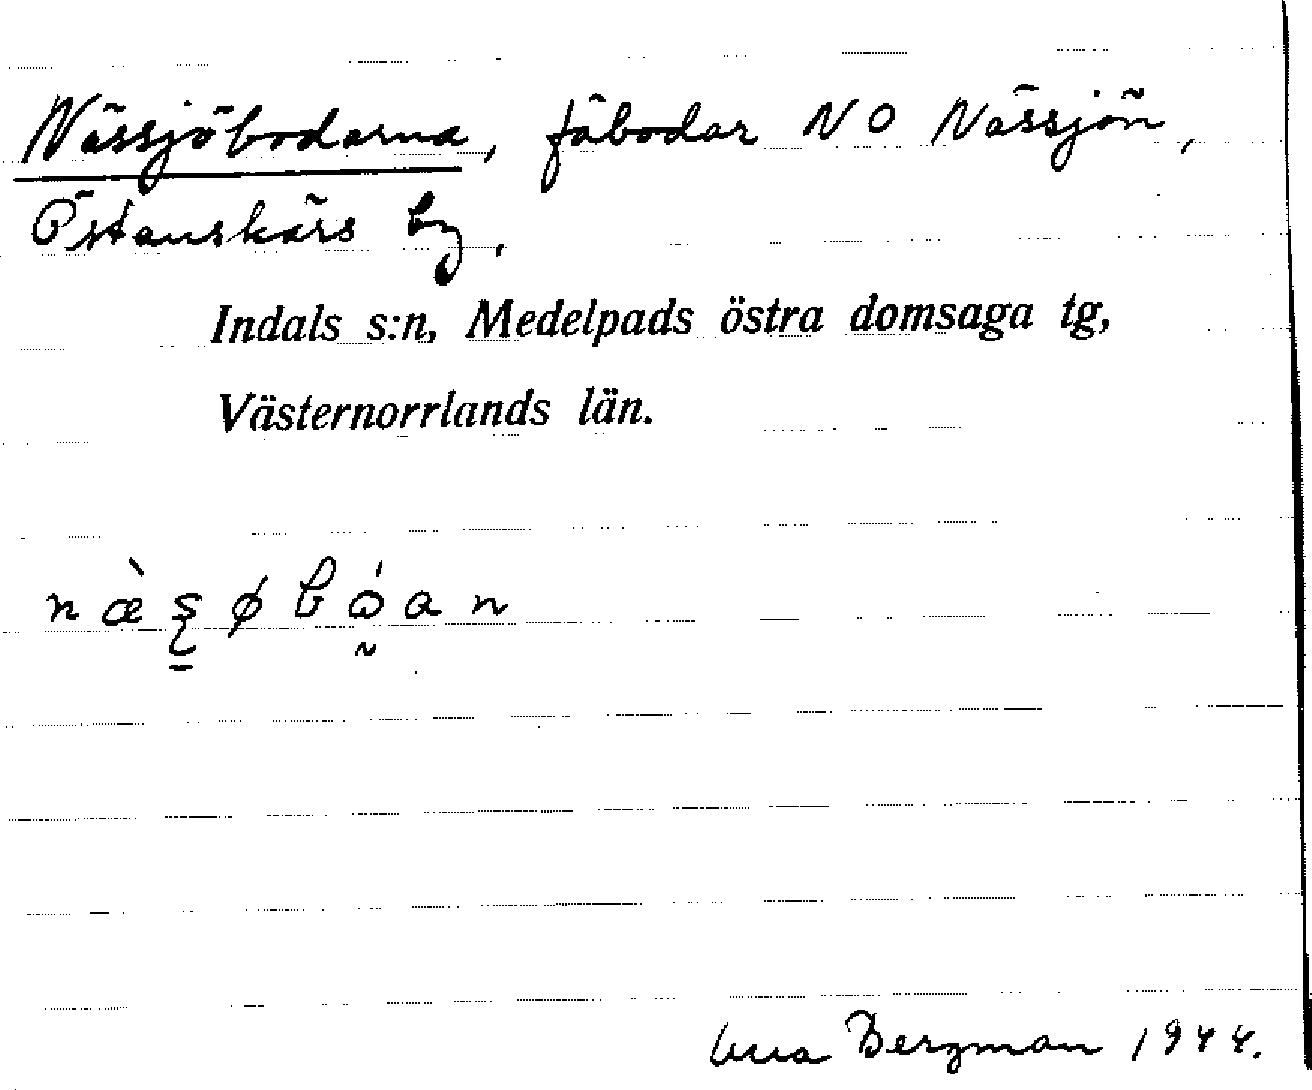 Nässjöbodarna, fäbodar NO Nässjön,
Östanskärs by.
Indals s:n, Medelpads östra domsaga tg,
Västernorrlands län.
Bergman 1944.